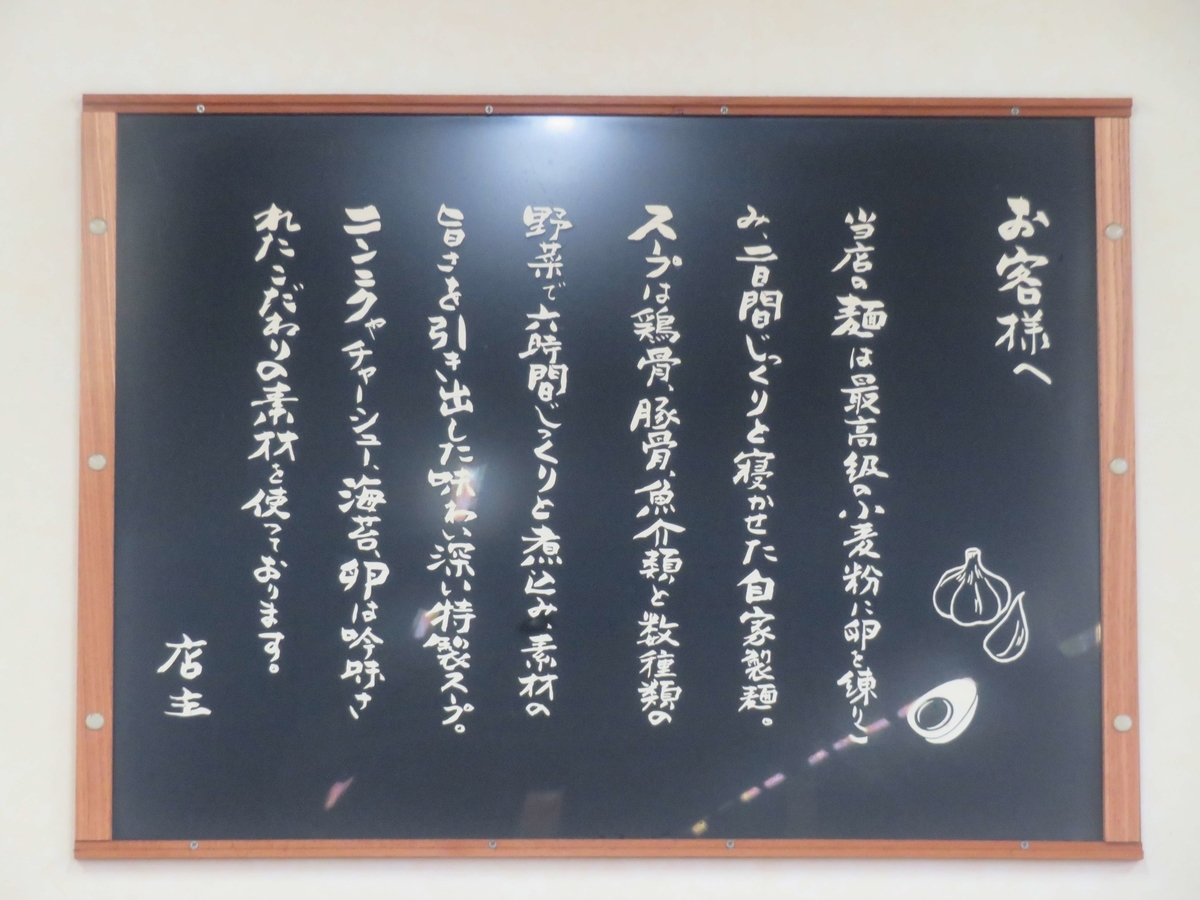 お客様へ
当店の麺は最高級の小麦粉に卵を練りこ
み、二日間じっくりと寝かせた自家製麺。
スープは鶏骨、豚骨、魚介類と数種類の
野菜で六時間じっくりと煮込み、素材の
旨さを引き出した味わい深い特製スープ。
ニンニクやチャーシュー、海苔、卵は吟味さ
れたこだわりの素材を使っております。
店主